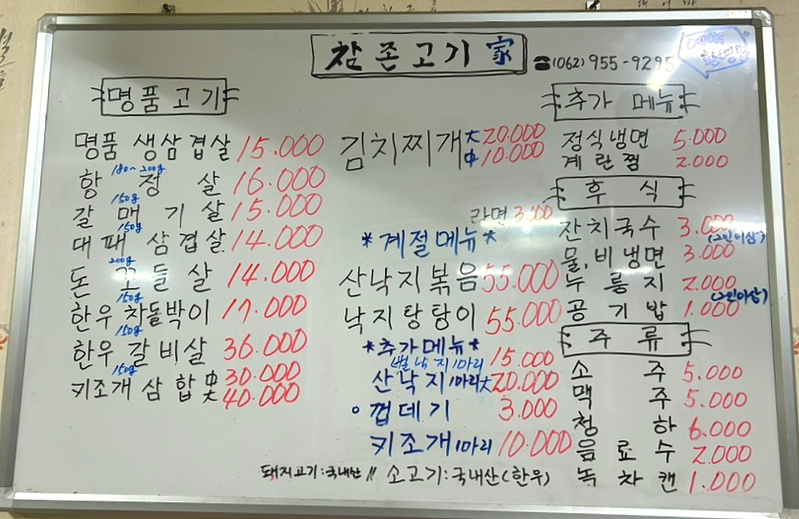 참존고기 家
☎(062)955-9295
예약 환영!!
명품고기
명품 생삼겹살 15.000
180~200g
항정살 16.000
150g
갈매기살 15.000
150g
대패 삼겹살 14.000
200g
돈꼬들살 14.000
150g
한우 차돌박이 17.000
150g
한우 갈비살 36.000
150g
키조개 삼합 中 30.000
大 40.000
김치찌개 大 20.000
中 10.000
라면 3.000
*계절메뉴*
산낙지볶음 55.000
낙지탕탕이 55.000
*추가메뉴*
뻘낙지 1마리 15.000
산낙지 1마리 大 20.000
껍데기 3.000
키조개 1마리 10.000
추가 메뉴
정식냉면 5.000
계란찜 2.000
후식
잔치국수 3.000
(2인이상)
물,비냉면 3.000
누룽지 2.000
(2인이상)
공기밥 1.000
주류
소주 5.000
맥주 5.000
청하 6.000
음료수 2.000
녹차캔 1.000
돼지고기:국내산 // 소고기:국내산(한우)